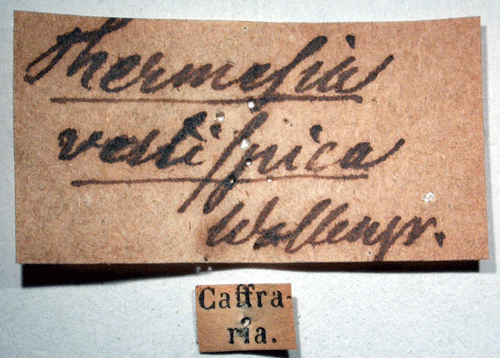 Thermesia
vestispica
Wallengr.
Caffra-
ria.